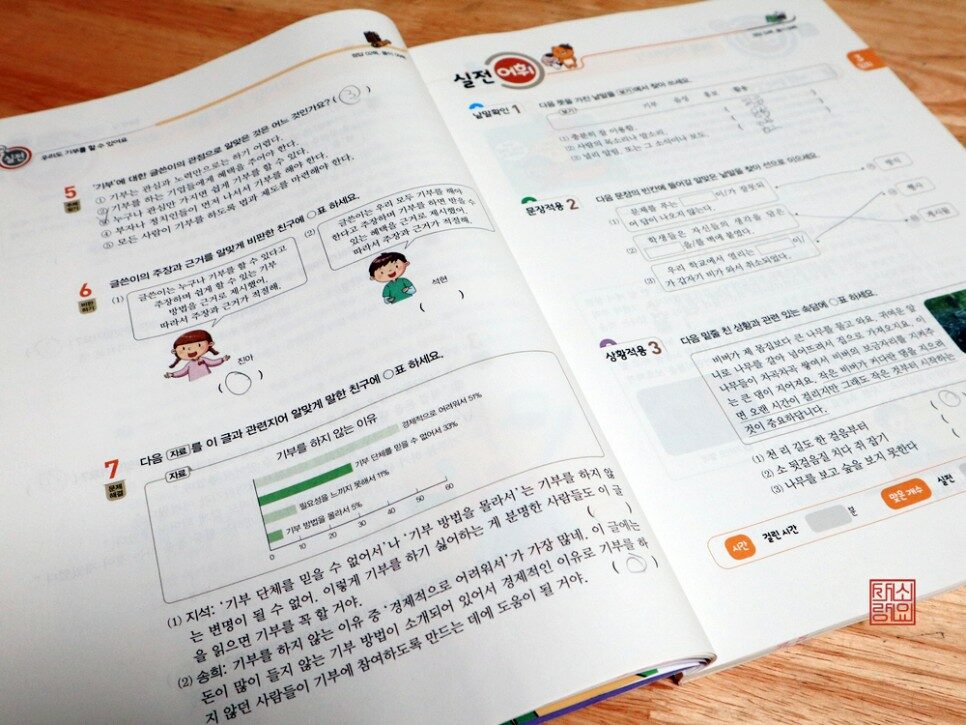 정답 02쪽, 풀이 06쪽
실전
우리도 기부를 할 수 있어요
5 '기부'에 대한 글쓴이의 관점으로 알맞은 것은 어느 것인가요? ( 3 )
① 기부는 관심과 노력만으로는 하기 어렵다.
② 기부를 하는 기업들에게 혜택을 주어야 한다.
③ 누구나 관심만 가지면 쉽게 기부를 할 수 있다.
④ 부자나 정치인들이 먼저 나서서 기부를 해야 한다.
⑤ 모든 사람이 기부를 하도록 법과 제도를 마련해야 한다.
6 글쓴이의 주장과 근거를 알맞게 비판한 친구에 ○표 하세요.
비판
하기
(1) 글쓴이는 누구나 기부를 할 수 있다고
주장하며 쉽게 할 수 있는 기부
방법을 근거로 제시했어.
따라서 주장과 근거가 적절해.
진아
( ○ )
(2) 글쓴이는 우리 모두 기부를 해야
한다고 주장하며 기부를 하면 받을 수
있는 혜택을 근거로 제시했어.
따라서 주장과 근거가 적절해.
석현
( )
7 다음 자료 를 이 글과 관련지어 알맞게 말한 친구에 ○표 하세요.
문제
해결
자료
기부를 하지 않는 이유
경제적으로 어려워서 51%
기부 단체를 믿을 수 없어서 33%
필요성을 느끼지 못해서 11%
기부 방법을 몰라서 5%
0 10 20 30 40 50 60
(1) 지석: '기부 단체를 믿을 수 없어서'나 '기부 방법을 몰라서'는 기부를 하지 않
는 변명이 될 수 없어. 이렇게 기부를 하기 싫어하는 게 분명한 사람들도 이 글
을 읽으면 기부를 꼭 할 거야. ( )
(2) 송희: 기부를 하지 않는 이유 중 '경제적으로 어려워서'가 가장 많네. 이 글에는
돈이 많이 들지 않는 기부 방법이 소개되어 있어서 경제적인 이유로 기부를 하
지 않던 사람들이 기부에 참여하도록 만드는 데에 도움이 될 거야. ( ○ )
실전 어휘
낱말확인 1 다음 뜻을 가진 낱말을 보기에서 찾아 쓰세요.
보기 기부 음성 홍보 활용
(1) 충분히 잘 이용함.
(2) 사람의 목소리나 말소리.
(3) 널리 알림. 또는 그 소식이나 보도.
문장적용 2 다음 문장의 빈칸에 들어갈 알맞은 낱말을 찾아 선으로 이으세요.
(1) 문제를 푸는 이/가 잘못되
어 답이 나오지 않는다.
(2) 학생들은 자신들의 생각을 담은
을/를 벽에 붙였다.
(3) 우리 학교에서 열리는 이/
가 갑자기 비가 와서 취소되었다.
방식
행사
게시물
상황적용 3 다음 밑줄 친 상황과 관련 있는 속담에 ○표 하세요.
비버가 제 몸집보다 큰 나무를 물고 와요. 귀여운 앞
니로 나무를 갉아 넘어뜨려서 집으로 가져오지요. 그
나무들이 차곡차곡 쌓여서 비버의 보금자리를 지켜주
는 큰 댐이 지어져요. 작은 비버가 커다란 댐을 지으려
면 오랜 시간이 걸리지만 그래도 작은 것부터 시작하는
것이 중요하답니다.
(1) 천 리 길도 한 걸음부터 ( ○
(2) 소 뒷걸음질 치다 쥐 잡기 (
(3) 나무를 보고 숲을 보지 못한다 (
시간 걸린 시간 분 맞은 개수 실전